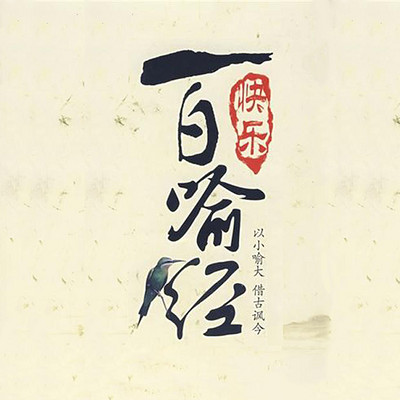 快乐
百喻经
以小喻大 借古讽今